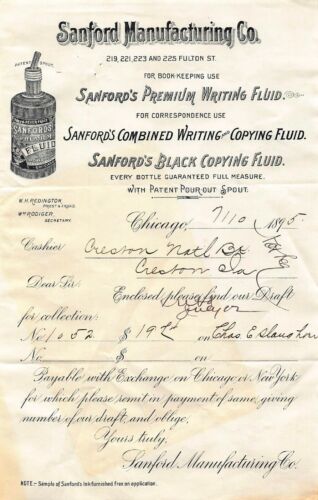 Sanford Manufacturing Co.
219, 221, 223 AND 225 FULTON ST.
PATENT SPOUT.
FOR BOOK-KEEPING USE
SANFORD'S PREMIUM WRITING FLUID.
FOR CORRESPONDENCE USE
SANFORD'S COMBINED WRITING AND COPYING FLUID.
SANFORD'S BLACK COPYING FLUID.
EVERY BOTTLE GUARANTEED FULL MEASURE.
WITH PATENT POUR-OUT SPOUT.
SANFORD'S
PREMIUM
FLUID
W. H. REDINGTON,
PREST & TREAS.
WM RODIGER,
SECRETARY.
Chicago, 7/10 1895.
Cashier Creston Natl Bk
Creston Ia
Dear Sir:
Enclosed please find our Draft
for collection:
No 1052 $ 19 on Chas E
No $ on
Payable with Exchange on Chicago or New York
for which please remit in payment of same, giving
number of our draft, and oblige,
Yours truly,
Sanford Manufacturing Co.
NOTE.- Sample of Sanford's Ink furnished Free on application.